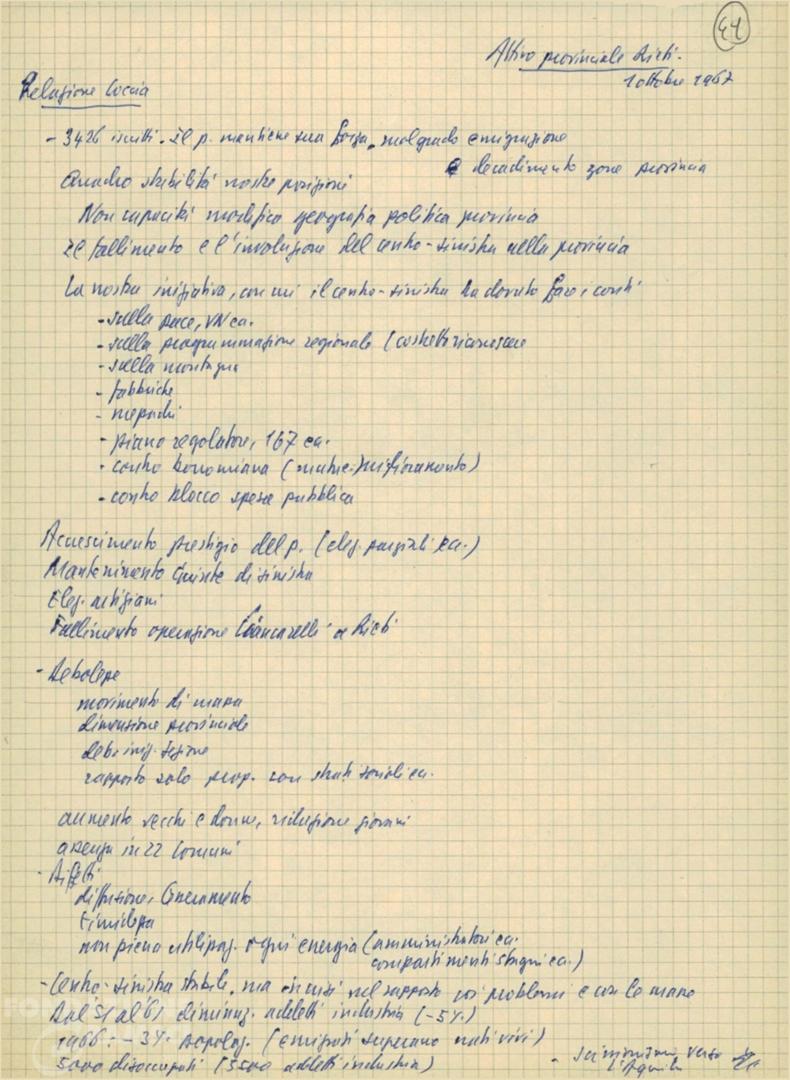 41
Attivo provinciale Rieti.
1 ottobre 1967
Relazione Coccia
- 3426 iscritti. Il p. mantiene sua forza, malgrado emigrazione
e decadimento zone provincia
Quadro stabilità nostre posizioni
Non capacità modifica geografia politica provincia
Il fallimento e l'involuzione del centro-sinistra nella provincia
La nostra iniziativa, con cui il centro-sinistra ha dovuto fare i conti
- sulla pace, VN ea.
- sulla programmazione regionale (
- sulla montagna
- fabbriche
- mezzadri
- piano regolatore, 167 ea.
- contro bonomiana (mutue, miglioramento)
- contro blocco spesa pubblica
Accrescimento prestigio del p. (elez. parziali ea.)
Mantenimento Giunte di sinistra
Elez. artigiani
Fallimento operazione Giancarelli a Rieti
- Debolezze
movimento di massa
dimensione provinciale
deb. iniz. sezione
rapporto solo prop. con strati sociali ea.
aumento vecchi e donne, riduzione giovani
assenza in 22 Comuni
- Difetti
diffusione, tesseramento
timidezza
non piena utilizzaz. ogni energia (amministratori ea.
compartimenti stagni ea.)
- Centro-sinistra stabile, ma in crisi nel rapporto coi problemi e con le masse
Dal '51 al '61 diminuz. addetti industria (-5%.)
1966: - 3%. popolaz. (emigrati superano nati vivi)
5000 disoccupati (3500 addetti industria)
- scissionismo verso
L'Aquila